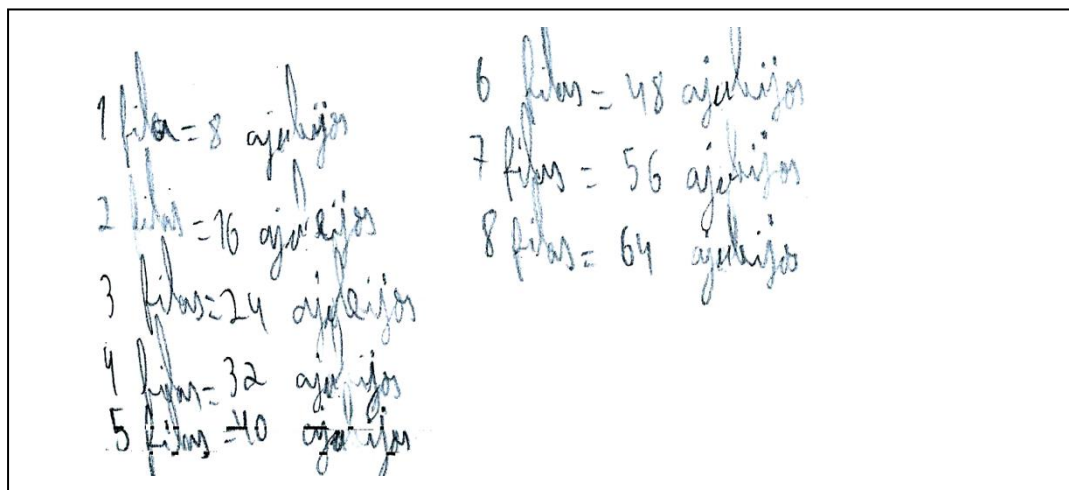 1 fila = 8 azulejos
2 filas = 16 azulejos
3 filas = 24 azulejos
4 filas = 32 azulejos
5 filas = 40 azulejos
6 filas = 48 azulejos
7 filas = 56 azulejos
8 filas = 64 azulejos